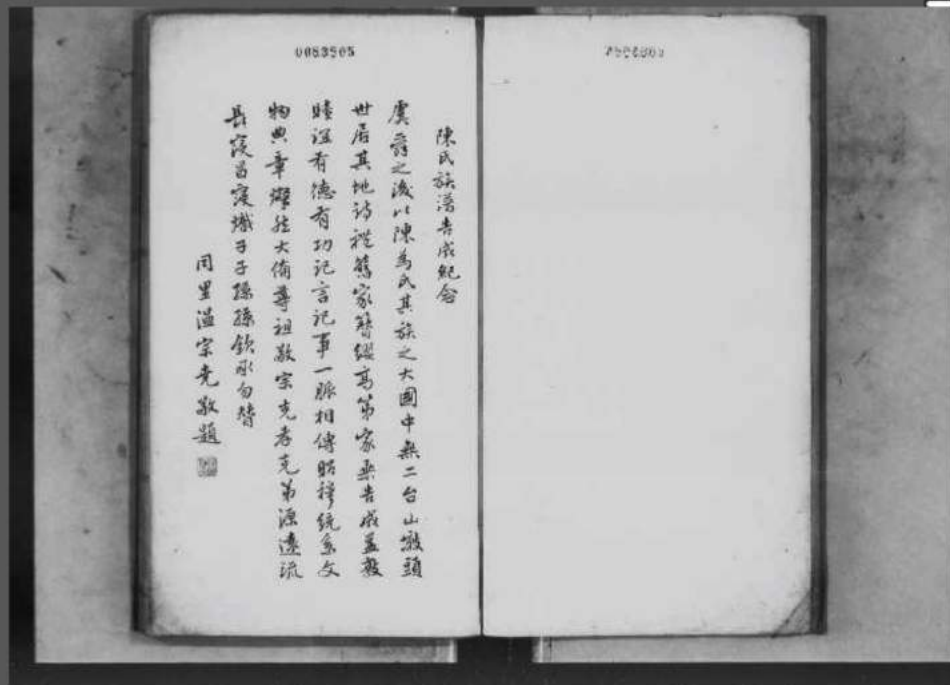 0083505
陳氏族譜告成紀念
虞舜之後以陳為氏其族之大國中無二台山墩頭
世居其地詩禮舊家簪纓高第家乘告成益敦
睦誼有德有功記言記事一脈相傳昭穆統系文
物典章燦然大備尊祖敬宗克孝克弟源遠流
長寖昌寖熾子子孫孫欽承勿替
同里溫宗堯敬題